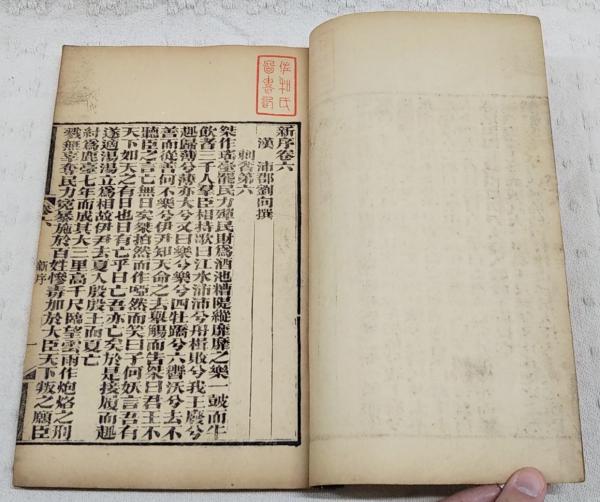 新序卷六
漢　沛郡劉向撰
刺奢第六
桀作瑤臺罷民力殫民財爲酒池糟隄縱靡靡之樂一鼓而牛
飲者三千人羣臣相持歌曰江水沛沛兮舟楫敗兮我王廢兮
趣歸薄兮薄亦大兮又曰樂兮樂兮四牡蹻兮六轡沃兮去不
善而從善何不樂兮伊尹知天命之去舉觴而告桀曰君王不
聽臣之言亡無日矣桀拍然而作啞然而笑曰子何妖言吾有
天下如天之有日也日有亡乎日亡吾亦亡矣於是接履而趣
遂適湯湯立爲相故伊尹去夏入殷殷王而夏亡
紂爲鹿臺七年而成其大三里高千尺臨望雲雨作炮烙之刑
戮無辜奪民力冤暴施於百姓慘毒加於大臣天下叛之願臣
卷六
新序
一